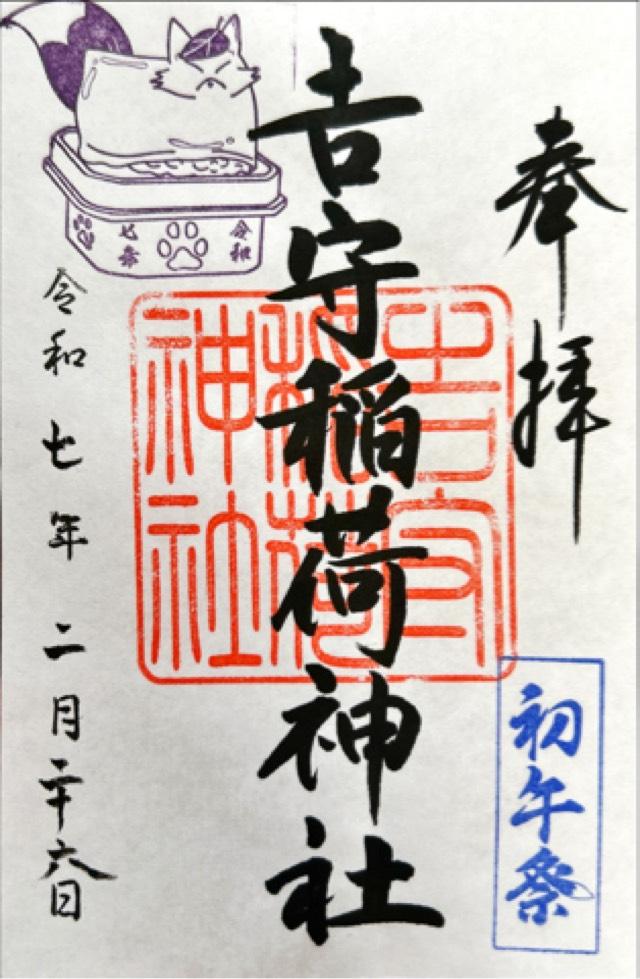 奉拝
初午祭
吉守稲荷神社
吉守
稲荷
神社
令和
七
令和七年二月二十六日